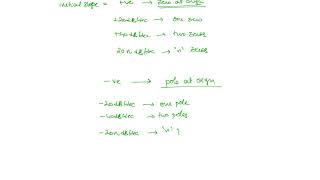 initial slope = +ve → zero at origin
+20dB/dec → one zero
+40dB/dec → two zeros
20 n dB/dec → 'n' zeros
-ve → pole at origin
-20dB/dec → one pole
-40dB/dec → two poles
-20n dB/dec → 'n' p